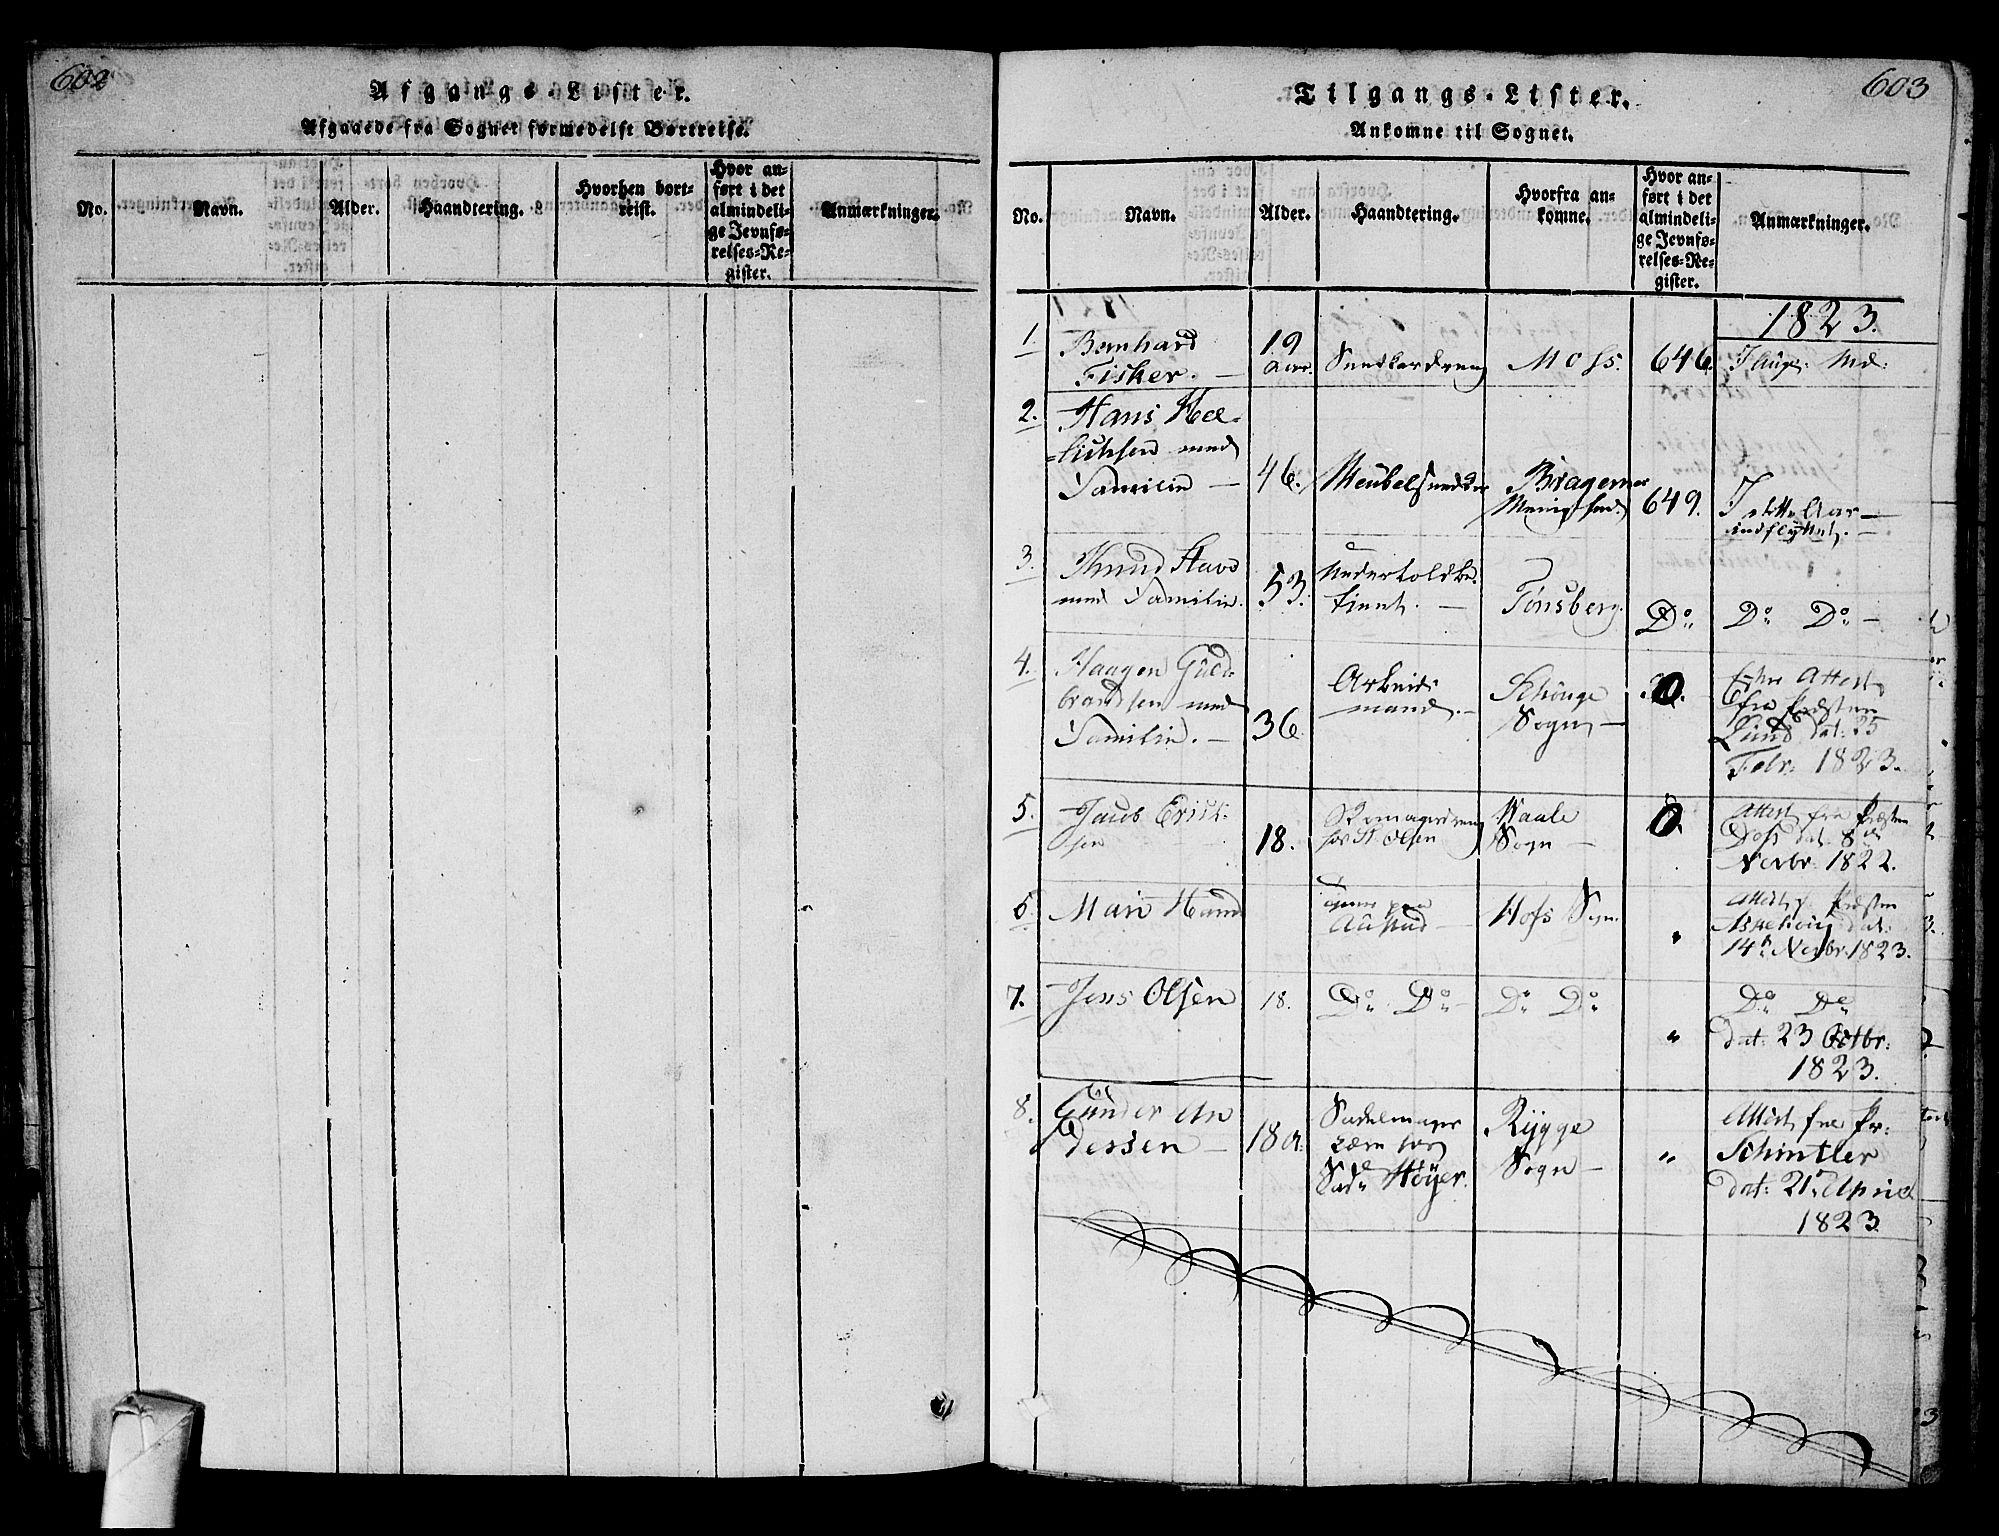 602
Afgangs-Lister.
Afgaaede fra Sognet formedelst Bortreise.
No.
Navn.
Alder.
Haandtering.
Hvorhen bort-
reist.
Hvor an-
ført i det
almindeli-
ge Jevnfø-
relses-Re-
gister.
Anmærkninger.
603
Tilgangs-Lister.
Ankomne til Sognet.
No.
Navn.
Alder.
Haandtering.
Hvorfra an-
komne.
Hvor an-
ført i det
almindeli-
ge Jevnfø-
relses-Re-
gister.
Anmærkninger.
1823.
1.
Bernhard
Fisker.
19
Moss.
646.
2.
Hans
med
Familie
46.
Meubelsnedker
Bragernes
Menighed.
649.
Aar
indflyttet.
3.
Knud
med Familie.
53.
Undertoldbe-
tient.
Tønsberg.
Do
Do Do
4.
Haagen Guld-
brandsen med
Familie.
36.
Arbeids
mand.
Sogn
Attest
fra Præsten
Lund dat: 25
Febr: 1823.
5.
Jacob Erick-
sen
18.
hos St. Olsen
Vaale
Sogn
Attest fra Præsten
dat. 8de
Novbr. 1822.
6.
Hofs Sogn
"
Attest f Præsten
dat:
14de Novbr. 1823.
7.
Jens Olsen
18.
Do Do
Do Do
"
Do Do
dat: 23 Octbr:
1823.
8.
Gunder An
dersen
18
Sadelmager
hos
Høyer.
Rygge
Sogn
"
Attest fra Pr:
Schintler
dat: 21 April
1823